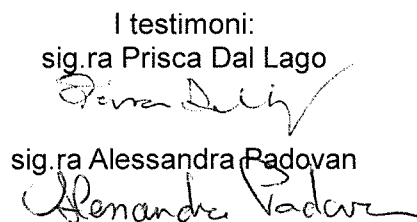 I testimoni:
sig.ra Prisca Dal Lago
sig.ra Alessandra Padovan
Alessandra Padovan